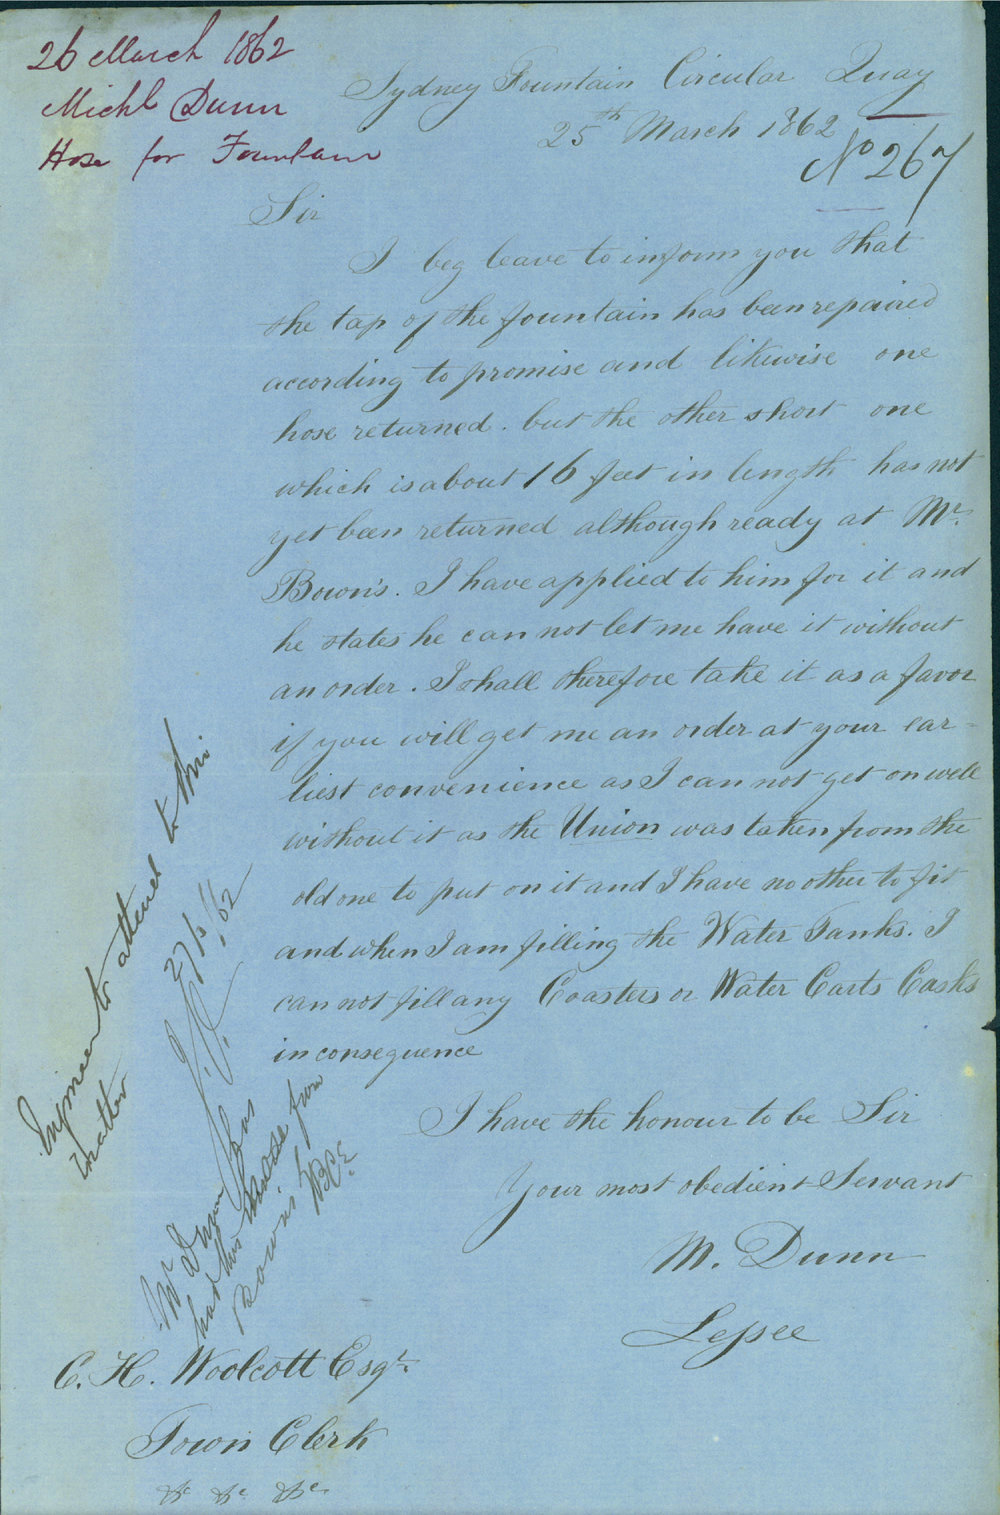 26 March 1862
Michl Dunn
Hose for Fountain
Sydney Fountain Circular Quay
25th March 1862
No 267
Sir
I beg leave to inform you that
the tap of the fountain has been repaired
according to promise and likewise one
hose returned. but the other short one
which is about 16 feet in length has not
yet been returned although ready at Mr.
Bown's. I have applied to him for it and
he states he can not let me have it without
an order. I shall therefore take it as a favor
if you will get me an order at your ear-
liest convenience as I can not get on well
without it as the Union was taken from the
old one to put on it and I have no other to fit
and when I am filling the Water Tanks. I
can not fill any Coasters or Water Carts Casks
in consequence
I have the honour to be Sir
Your most obedient Servant
M. Dunn
Lessee
C. H. Woolcott Esqr.
Town Clerk
&c &c &c
Engineer to attend to this
matter
27/3/62
Mr Dunn has
had this hose from
Bown's